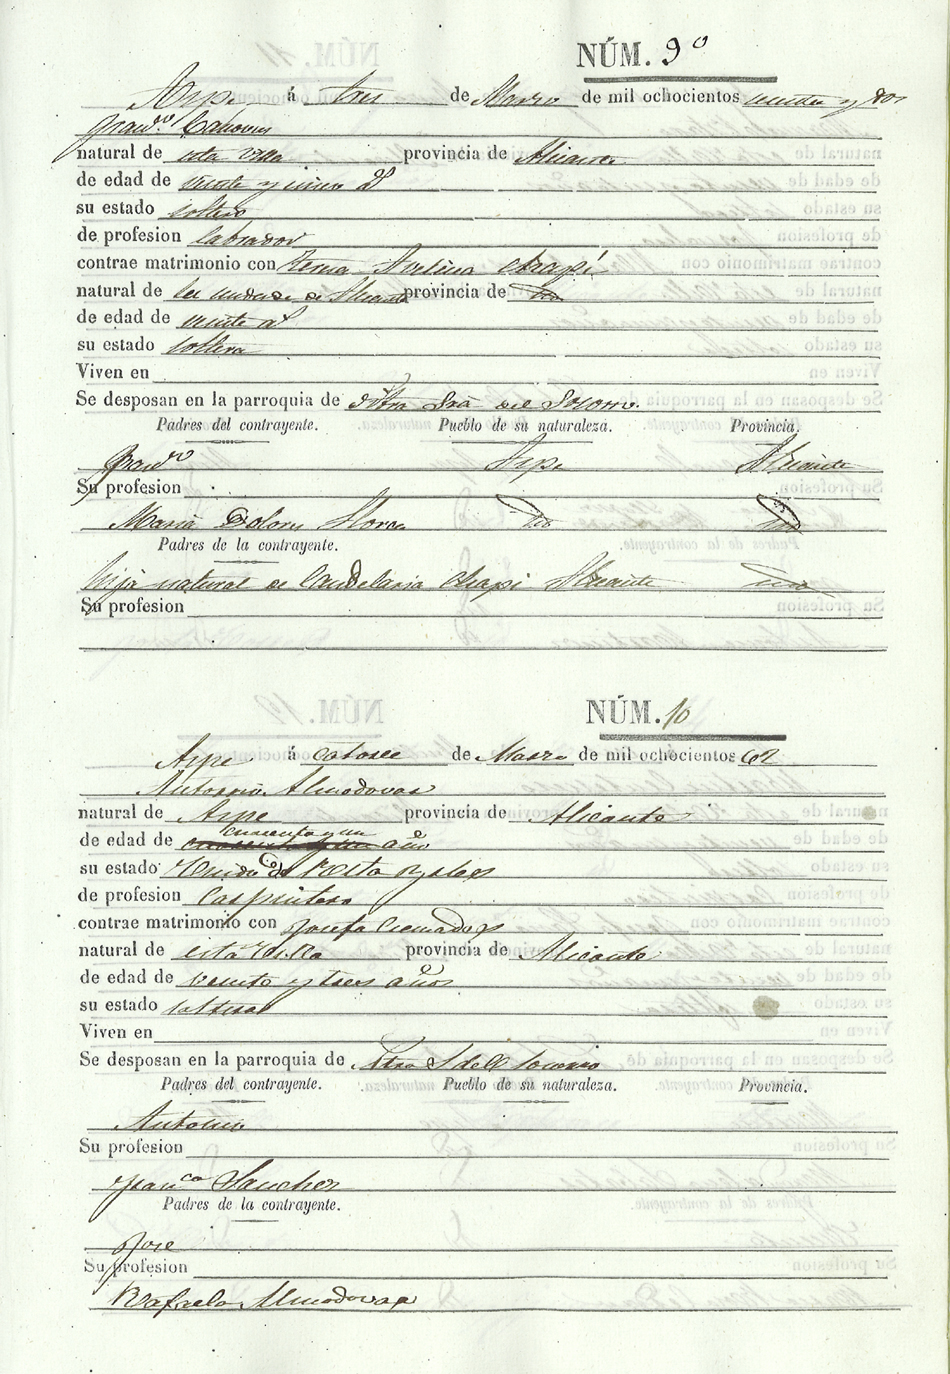 NÚM. 9º
Aspe á tres de Marzo de mil ochocientos sesenta y dos
Franco. Canovas
natural de esta villa provincia de Alicante
de edad de veinte y cinco as
su estado soltero
de profesion labrador
contrae matrimonio con Avelina Chapí
natural de la ciudad de Alicante provincia de
de edad de veinte as
su estado soltera
Viven en
Se desposan en la parroquia de Ntra Sra del Socorro.
Padres del contrayente. Pueblo de su naturaleza. Provincia.
Franco Aspe Alicante
Su profesion
Maria Dolores Llorca
Padres de la contrayente.
hija natural de Candelaria Chapi Alicante
Su profesion
NÚM. 10
Aspe á catorce de Marzo de mil ochocientos 62
Antonio Almodovar
natural de Aspe provincia de Alicante
cuarenta y un
de edad de años
su estado Viudo de
de profesion Carpintero
contrae matrimonio con Josefa Cremades
natural de esta Villa provincia de Alicante
de edad de veinte y tres años
su estado soltera
Viven en
Se desposan en la parroquia de Ntra S del Socorro
Padres del contrayente. Pueblo de su naturaleza. Provincia.
Antonio
Su profesion
Franca Sanchez
Padres de la contrayente.
Jose
Su profesion
Rafaela Almodovar